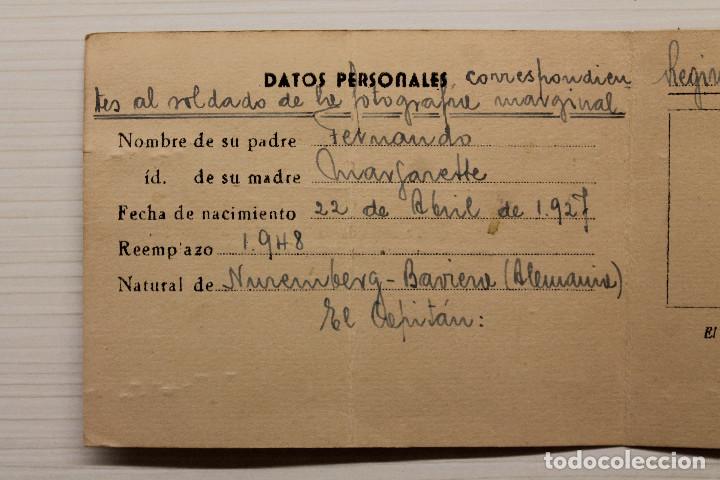 DATOS PERSONALES correspondien
tes al soldado de la fotografia marginal
Nombre de su padre Fernando
íd. de su madre Margarette
Fecha de nacimiento 22 de Abril de 1.927
Reemp'azo 1.948
Natural de Nuremberg - Baviera (Alemania)
El Capitán:
El
todocoleccion.net